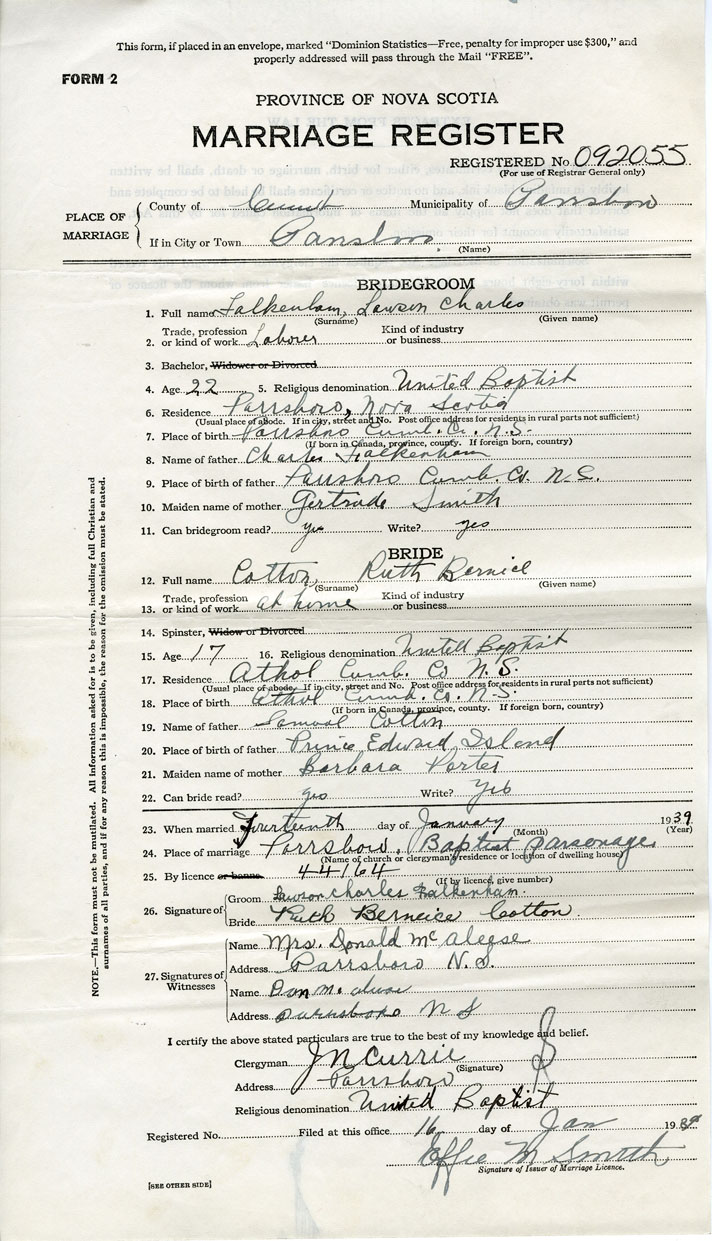 This form, if placed in an envelope, marked "Dominion Statistics—Free, penalty for improper use $300," and
properly addressed will pass through the Mail "FREE".
FORM 2
PROVINCE OF NOVA SCOTIA
MARRIAGE REGISTER
REGISTERED No. 092055
(For use of Registrar General only)
PLACE OF MARRIAGE
County of Cumb Municipality of Parrsboro
If in City or Town Parrsboro.
(Name)
BRIDEGROOM
1. Full name Falkenham, Lawson Charles
(Surname) (Given name)
2. Trade, profession or kind of work Laborer Kind of industry or business
3. Bachelor, Widower or Divorced
4. Age 22 5. Religious denomination United Baptist
6. Residence Parrsboro, Nova Scotia
(Usual place of abode. If in city, street and No. Post office address for residents in rural parts not sufficient)
7. Place of birth Parrsboro Cumb. Co. N.S.
(If born in Canada, province, county. If foreign born, country)
8. Name of father Charles Falkenham
9. Place of birth of father Parrsboro Cumb. Co. N.S.
10. Maiden name of mother Gertrude Smith
11. Can bridegroom read? yes Write? yes
BRIDE
12. Full name Cotton, Ruth Bernice
(Surname) (Given name)
13. Trade, profession or kind of work at home Kind of industry or business
14. Spinster, Widow or Divorced
15. Age 17 16. Religious denomination United Baptist
17. Residence Athol Cumb. Co N.S.
(Usual place of abode. If in city, street and No. Post office address for residents in rural parts not sufficient)
18. Place of birth Athol Cumb. Co. N.S.
(If born in Canada, province, county. If foreign born, country)
19. Name of father Samuel Cotton
20. Place of birth of father Prince Edward Island
21. Maiden name of mother Barbara Porter
22. Can bride read? yes Write? Yes
23. When married Fourteenth day of January 1939
(Month) (Year)
24. Place of marriage Parrsboro, Baptist parsonage
(Name of church or clergyman's residence or location of dwelling house)
25. By licence or banns 44164
(If by licence, give number)
26. Signature of
Groom Lawson Charles Falkenham.
Bride Ruth Berneice Cotton.
27. Signatures of Witnesses
Name Mrs. Donald McAleese
Address Parrsboro N.S.
Name Don
Address Parrsboro N S
I certify the above stated particulars are true to the best of my knowledge and belief.
Clergyman J N Currie
(Signature)
Address Parrsboro
Religious denomination United Baptist
Registered No. Filed at this office 16 day of Jan 1939
Effie M Smith
Signature of Issuer of Marriage Licence.
[SEE OTHER SIDE]
NOTE.—This form must not be mutilated. All information asked for is to be given, including full Christian and
surnames of all parties, and if for any reason this is impossible, the reason for the omission must be stated.